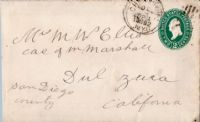 Mrs M W Ellis
care of m Marshall
Dul zura
san Diego
county
California